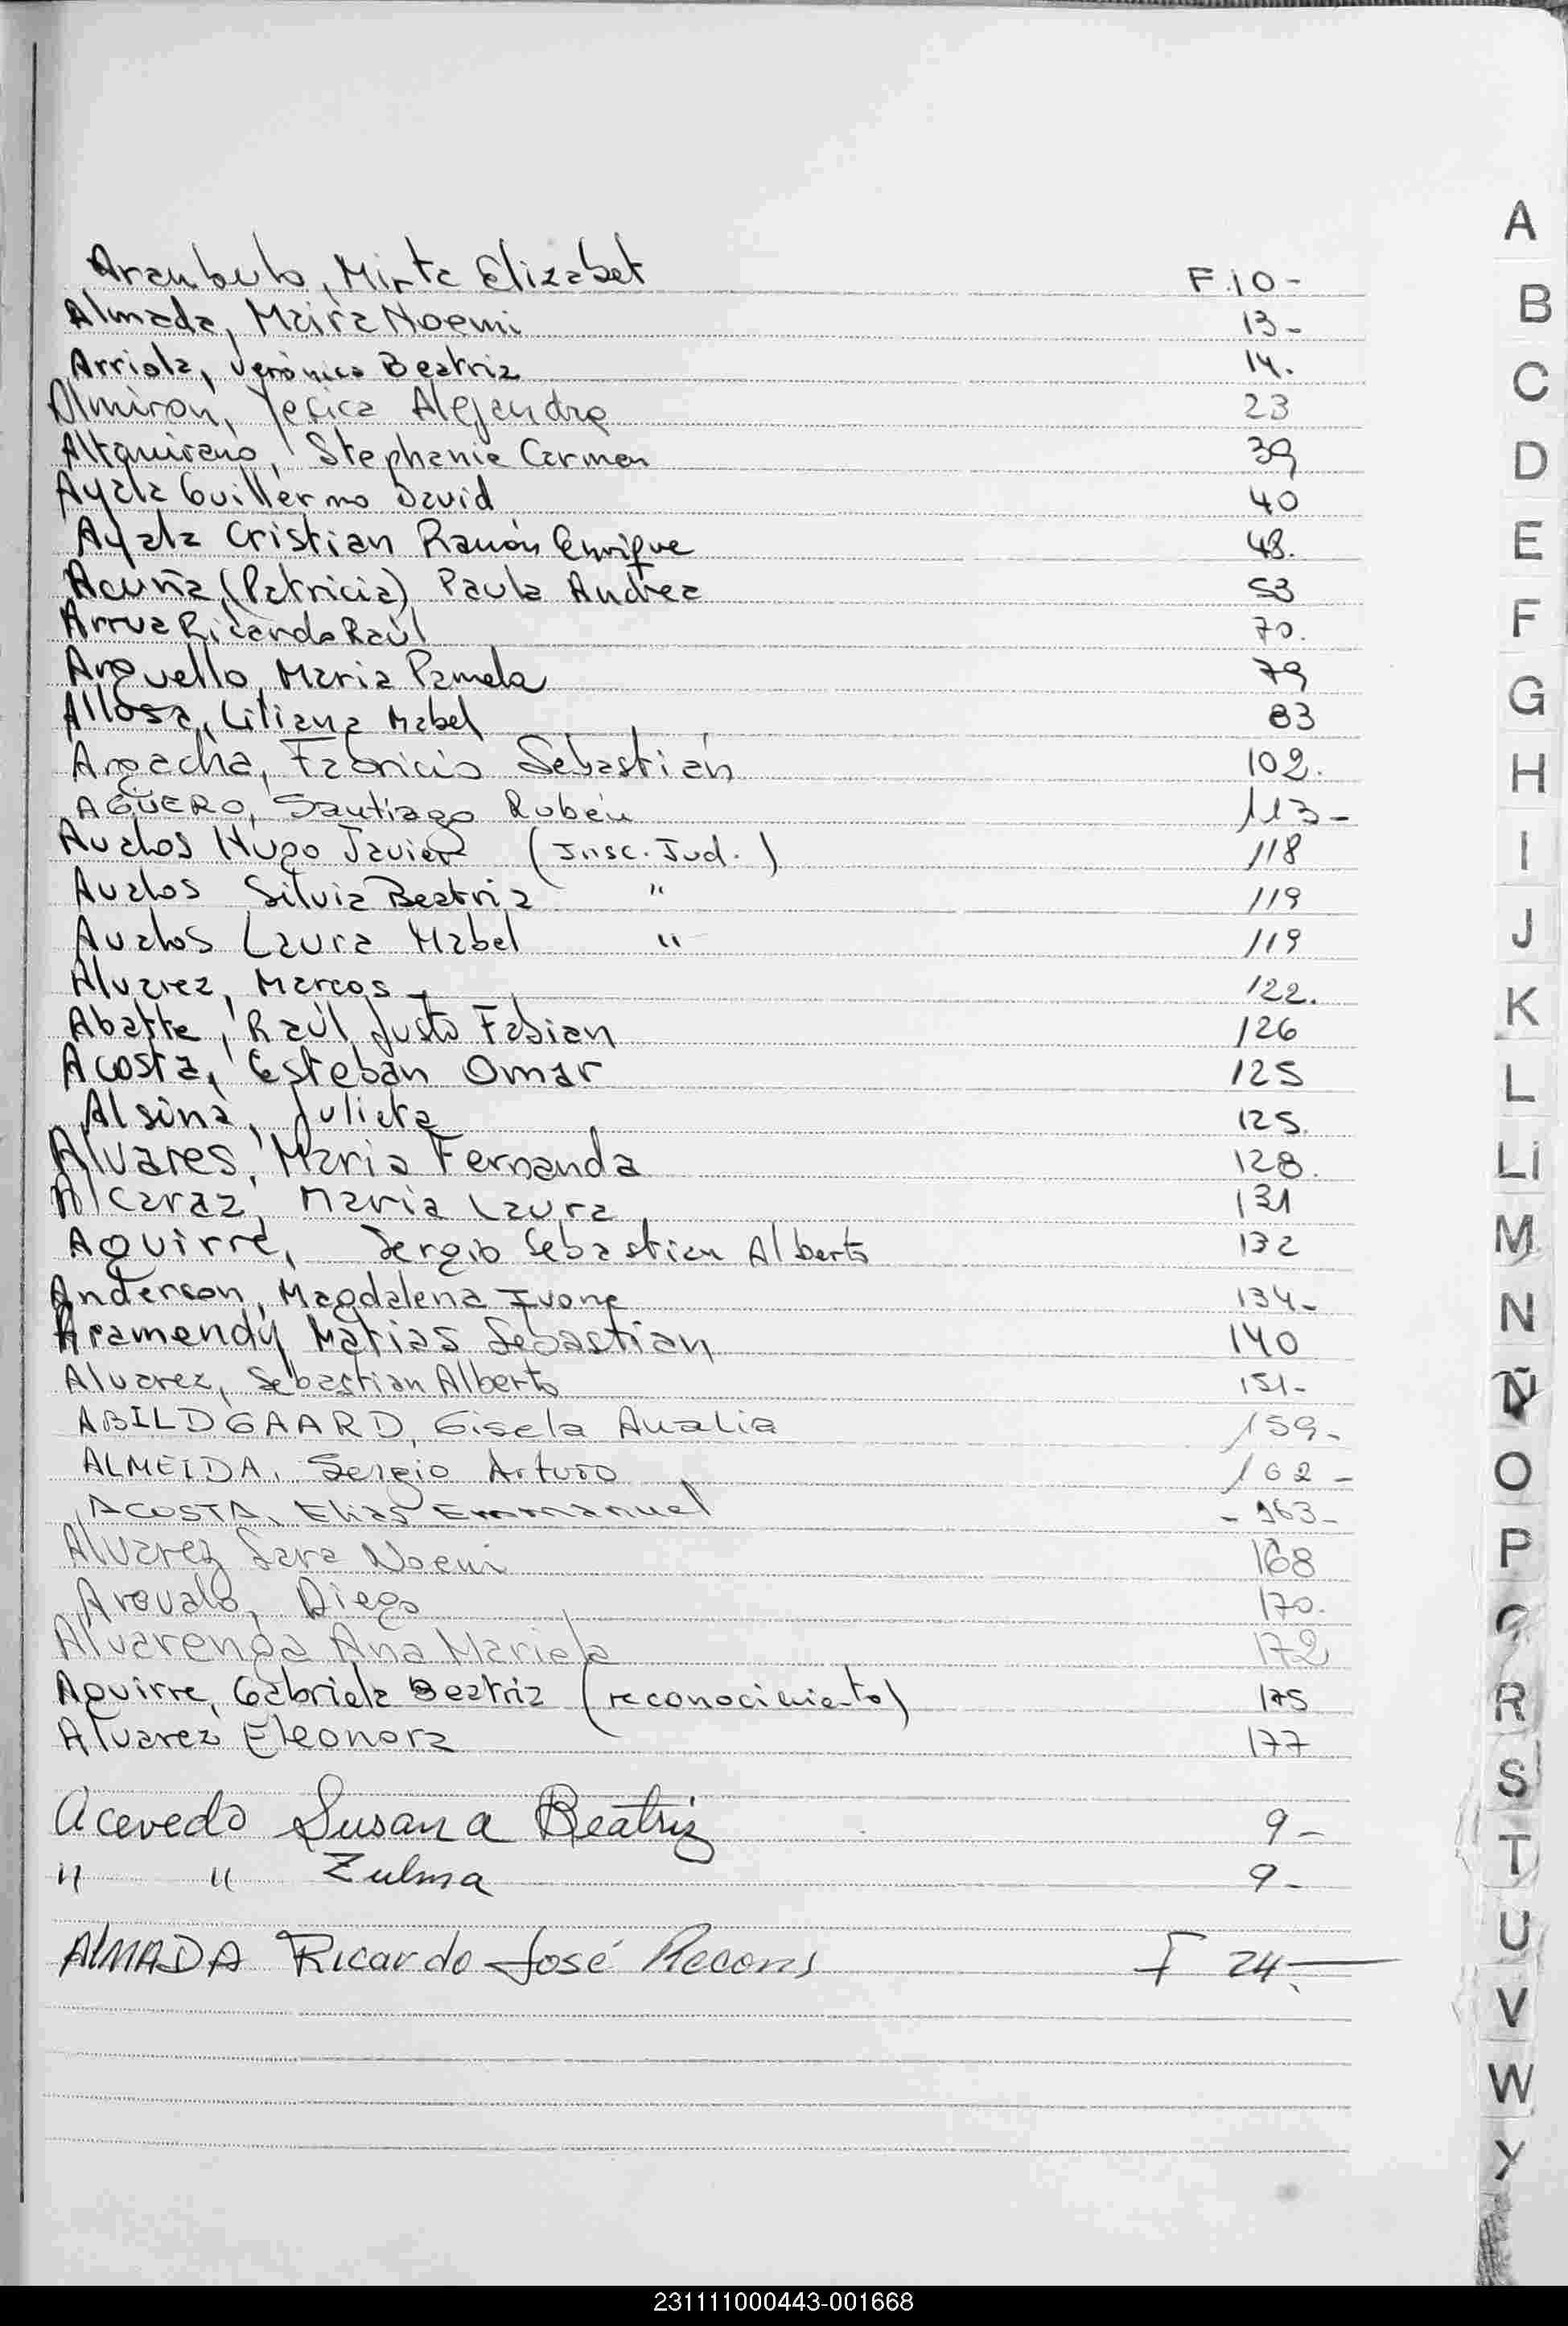 Aranbulo, Mirta Elizabet F.10-
Almada, Maira Noemi 13-
Arriola, Verónica Beatriz 14.
Almiron, Yesica Alejandra 23
Altamirano, Stephanie Carmen 39
Ayala Guillermo David 40
Ayala Cristian Ramón Enrique 48.
Acuña (Patricia) Paula Andrea 53
Arrua Ricardo Raúl 70.
Arguello, Maria Pamela 79
Allosa, Liliana Mabel 83
Argacha, Fabricio Sebastián 102.
AGÜERO, Santiago Rubén 113-
Avalos Hugo Javier (Insc. Jud.) 118
Avalos Silvia Beatriz " 119
Avalos Laura Mabel " 119
Alvarez, Marcos 122.
Abatte, Raúl Justo Fabian 126
Acosta, Esteban Omar 125
Alsina, Julieta 125.
Alvares, Maria Fernanda 128.
Alcaraz, Maria Laura 131
Aguirre, Sergio Sebastian Alberto 132
Anderson, Magdalena Ivone 134-
Aramendy Matias Sebastián 140
Alvarez, Sebastian Alberto 151-
ABILDGAARD, Gisela Analia 159-
ALMEIDA, Sergio Arturo 162-
ACOSTA, Elias Emmanuel - 163-
Alvarez Sara Noemi 168
Arevalo, Diego 170.
Alvarenga Ana Mariela 172
Aguirre, Gabriela Beatriz (reconocimiento) 175
Alvarez Eleonora 177
Acevedo Susana Beatriz 9-
" " Zulma 9-
ALMADA Ricardo José F 24.-
A
B
C
D
E
F
G
H
I
J
K
L
Ll
M
N
Ñ
O
P
Q
R
S
T
U
V
W
Y
231111000443-001668